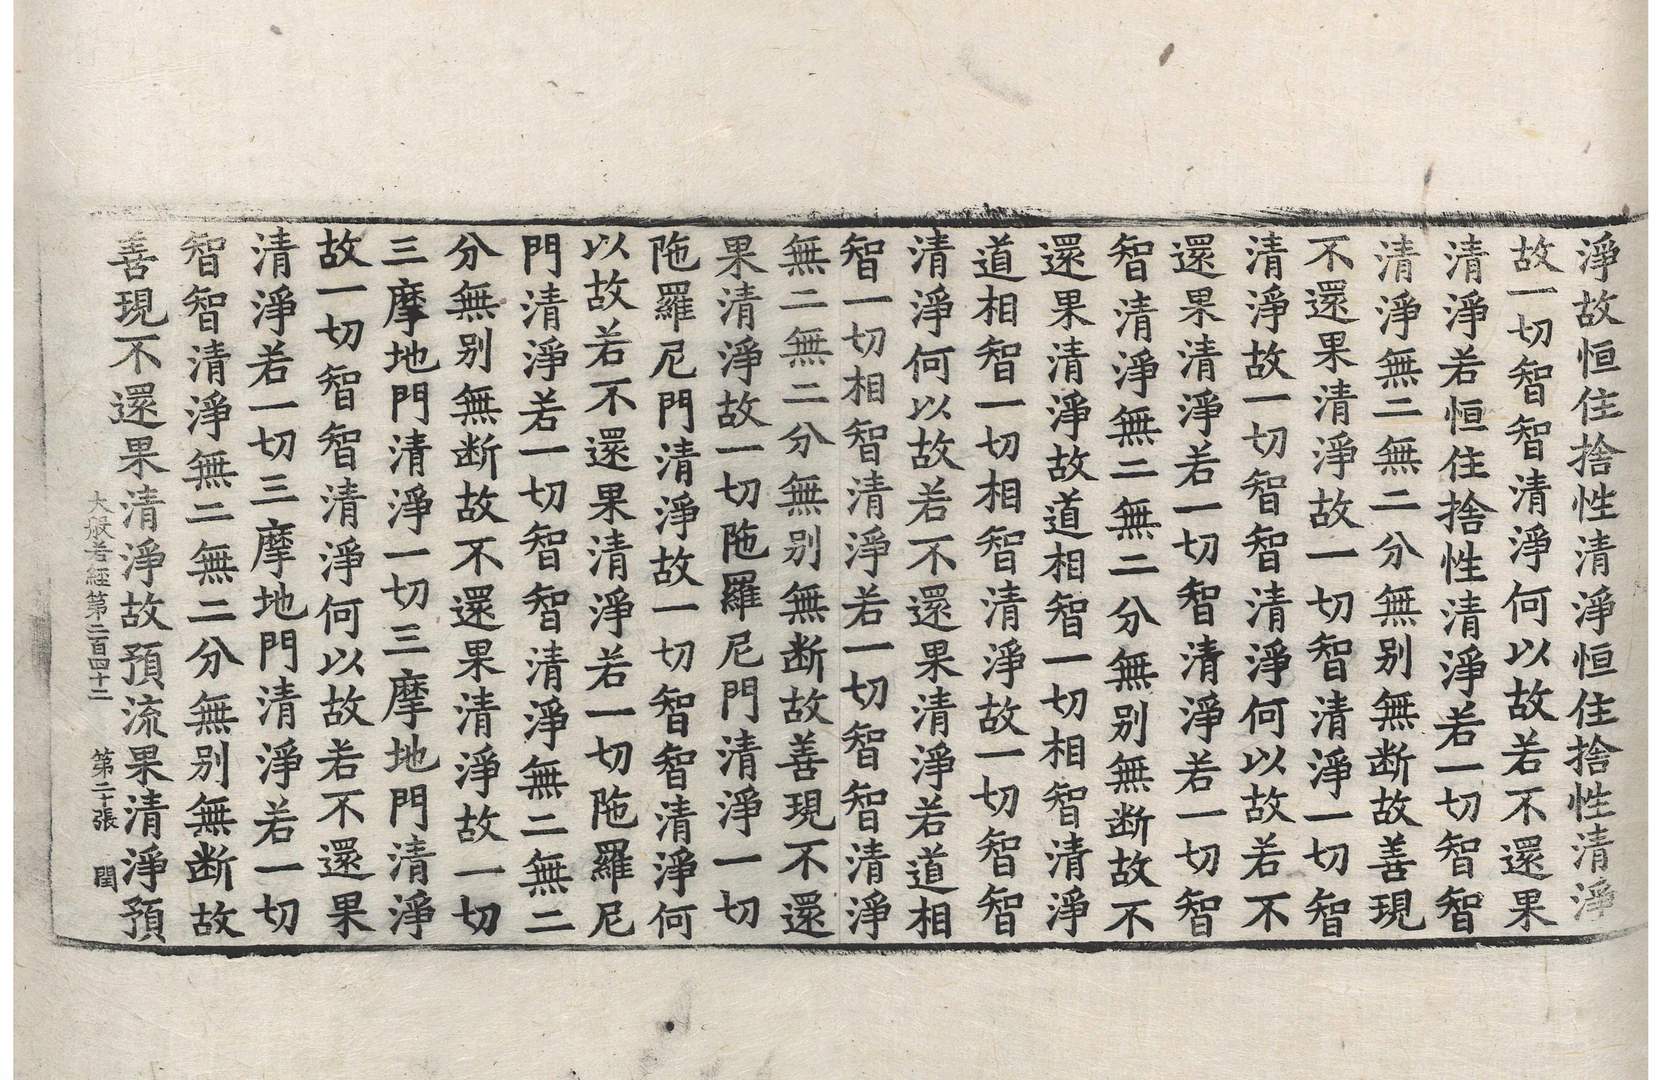 淨故恒住捨性清淨恒住捨性清淨
故一切智智清淨何以故若不還果
清淨若恒住捨性清淨若一切智智
清淨無二無二分無别無断故善現
不還果清淨故一切智清淨一切智
清淨故一切智智清淨何以故若不
還果清淨若一切智清淨若一切智
智清淨無二無二分無别無断故不
還果清淨故道相智一切相智清淨
道相智一切相智清淨故一切智智
清淨何以故若不還果清淨若道相
智一切相智清淨若一切智智清淨
無二無二分無别無断故善現不還
果清淨故一切陁羅尼門清淨一切
陁羅尼門清淨故一切智智清淨何
以故若不還果清淨若一切陁羅尼
門清淨若一切智智清淨無二無二
分無别無断故不還果清淨故一切
三摩地門清淨一切三摩地門清淨
故一切智智清淨何以故若不還果
清淨若一切三摩地門清淨若一切
智智清淨無二無二分無别無断故
善現不還果清淨故預流果清淨預
大般若經第二百四十二 第二十張 閏